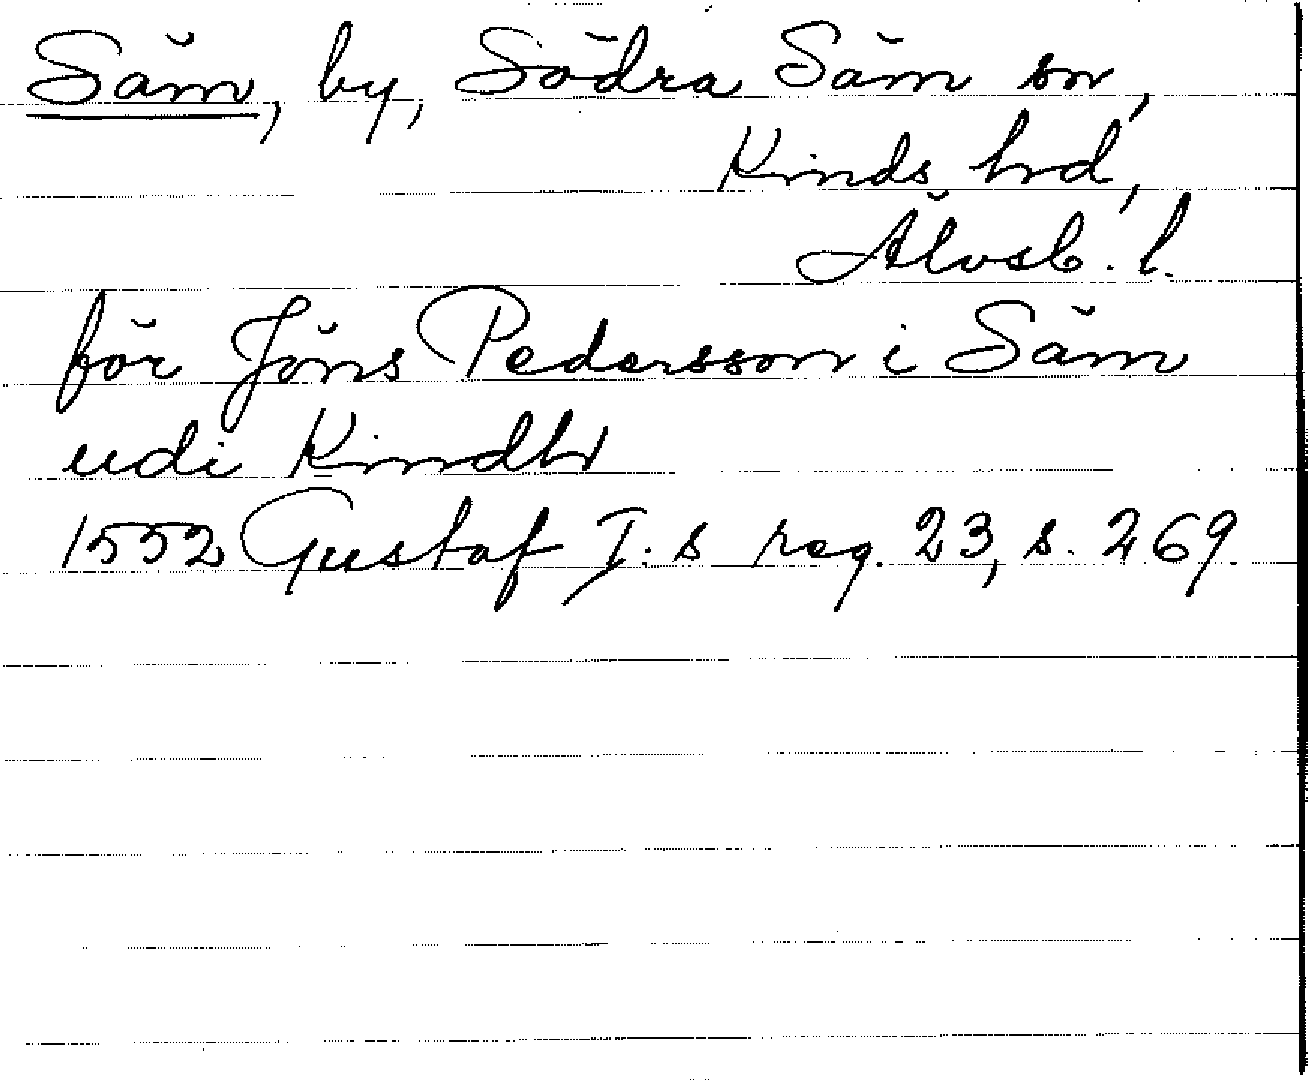 Säm, by, Södra Säm sn,
Kinds hrd,
Älvsb. l.
för Jöns Pedersson i Säm
udi Kindh
1552 Gustaf I:s reg. 23, s. 269.